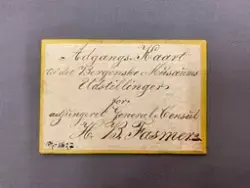 Adgangs-Kaart
til det Bergenske Musæums
Udstillinger
for
adjungeret General-Consul
H. B. Fasmer